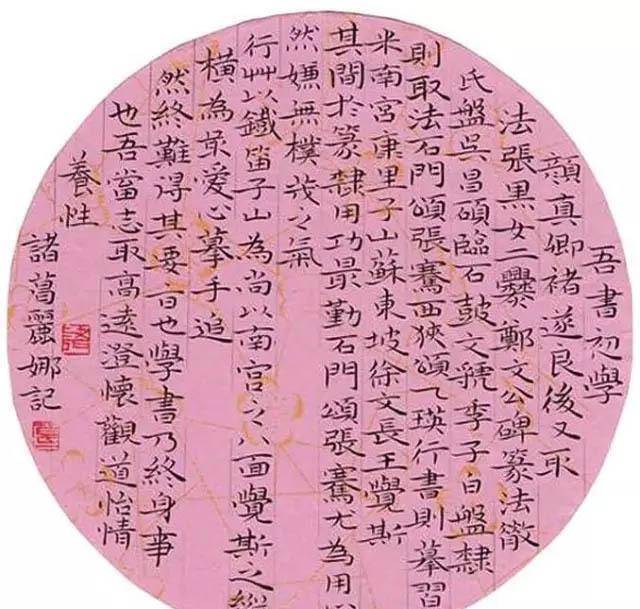 吾書初學
顏真卿褚遂良後又取
法張黑女二爨鄭文公碑篆法散
氏盤吳昌碩臨石鼓文虢季子白盤隸
則取法石門頌張騫西狹頌乙瑛行書則摹習
米南宮康里子山蘇東坡徐文長王覺斯
其間於篆隸用功最勤石門頌張騫尤為用
然嫌無樸茂之氣
行艸以鐵笛子山為尚以南宮之八面覺斯之經
橫為最愛心摹手追
然終難得其要旨也學書乃終身事
也吾當志取高遠澄懷觀道怡情
養性
諸葛麗娜記